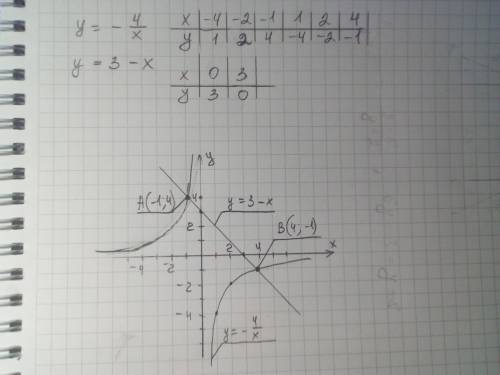 y = - 4/x
x | -4 | -2 | -1 | 1 | 2 | 4
y | 1 | 2 | 4 | -4 | -2 | -1
y = 3 - x
x | 0 | 3
y | 3 | 0
y
A(-1;4)
4
y = 3 - x
2
B(4;-1)
-4 -2 2 4 x
-2
-4
y = - 4/x